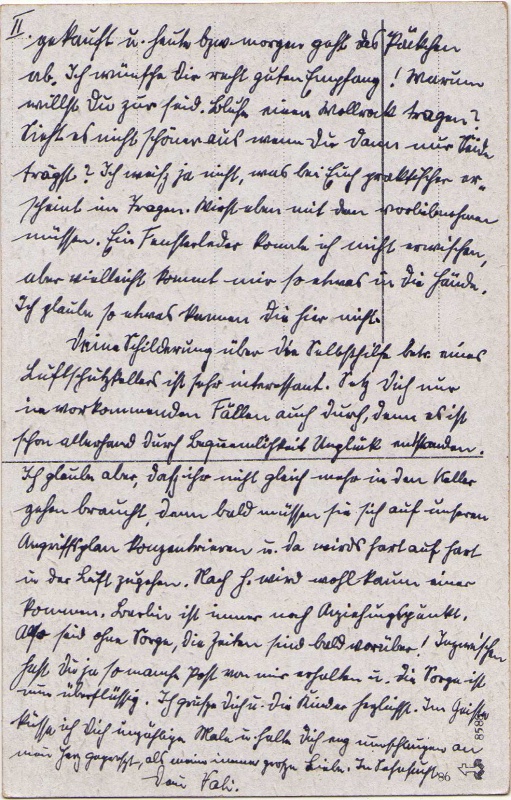 II.
gekauft u. heute bzw. morgen geht das Päckchen
ab. Ich wünsche Dir recht guten Empfang! Warum
willst Du zur seid. Bluse einen Wollrock tragen?
Sieht es nicht schöner aus wenn Du dann nur Seide
trägst? Ich weiß ja nicht, was bei Euch praktischer er-
scheint im Tragen. Wirst eben mit dem vorliebnehmen
müssen. Ein Fensterleder konnte ich nicht erwischen,
aber vielleicht kommt mir so etwas in die Hände.
Ich glaube so etwas kennen die hier nicht.
Deine Schilderung über die Selbsthilfe betr. eines
Luftschutzkellers ist sehr interessant. Setz Dich nur
in vorkommenden Fällen auch durch, denn es ist
schon allerhand durch Bequemlichkeit Unglück entstanden.
Ich glaube aber, daß ihr nicht gleich mehr in den Keller
gehen braucht, denn bald müssen sie sich auf unseren
Angriffsplan konzentrieren u. da wirds hart auf hart
in der Luft zugehen. Nach H. wird wohl kaum einer
kommen. Berlin ist immer noch Anziehungspunkt.
Also seid ohne Sorge, die Zeiten sind bald vorüber! Inzwischen
hast Du ja so manche Post von mir erhalten u. die Sorge ist
nun überflüssig. Ich grüße Dich u. die Kinder herzlichst. Im Geiste
küsse ich Dich unzählige Male u. halte Dich eng umschlungen an
mein Herz gepresst, als meine immer große Liebe. In Sehnsucht
Dein
86
8583